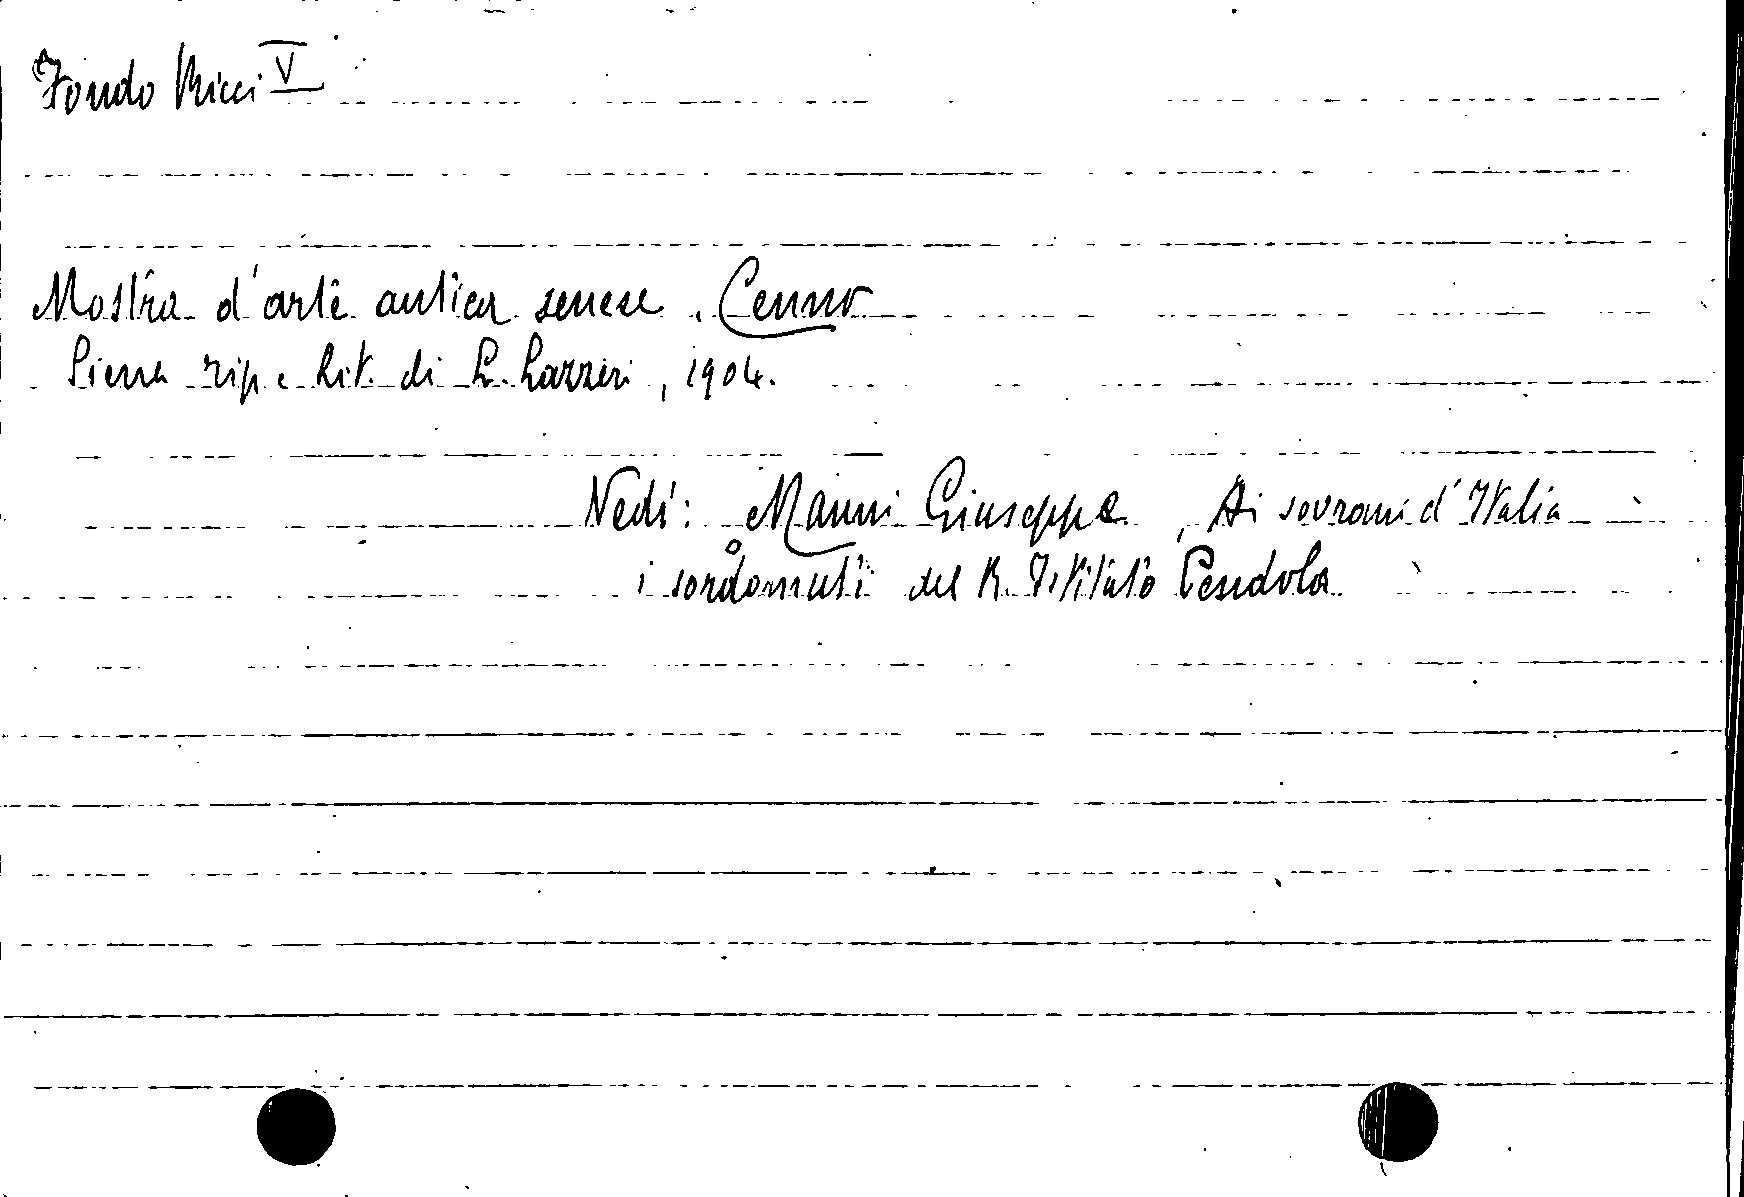 Fondo Ricci V
Mostra d'arte antica senese. Cenno
Siena tip. e lit. di L. Lazzeri, 1904.
Vedi: Manni Giuseppe, Ai sovrani d'Italia
i sordomuti del R. Istituto Pendola